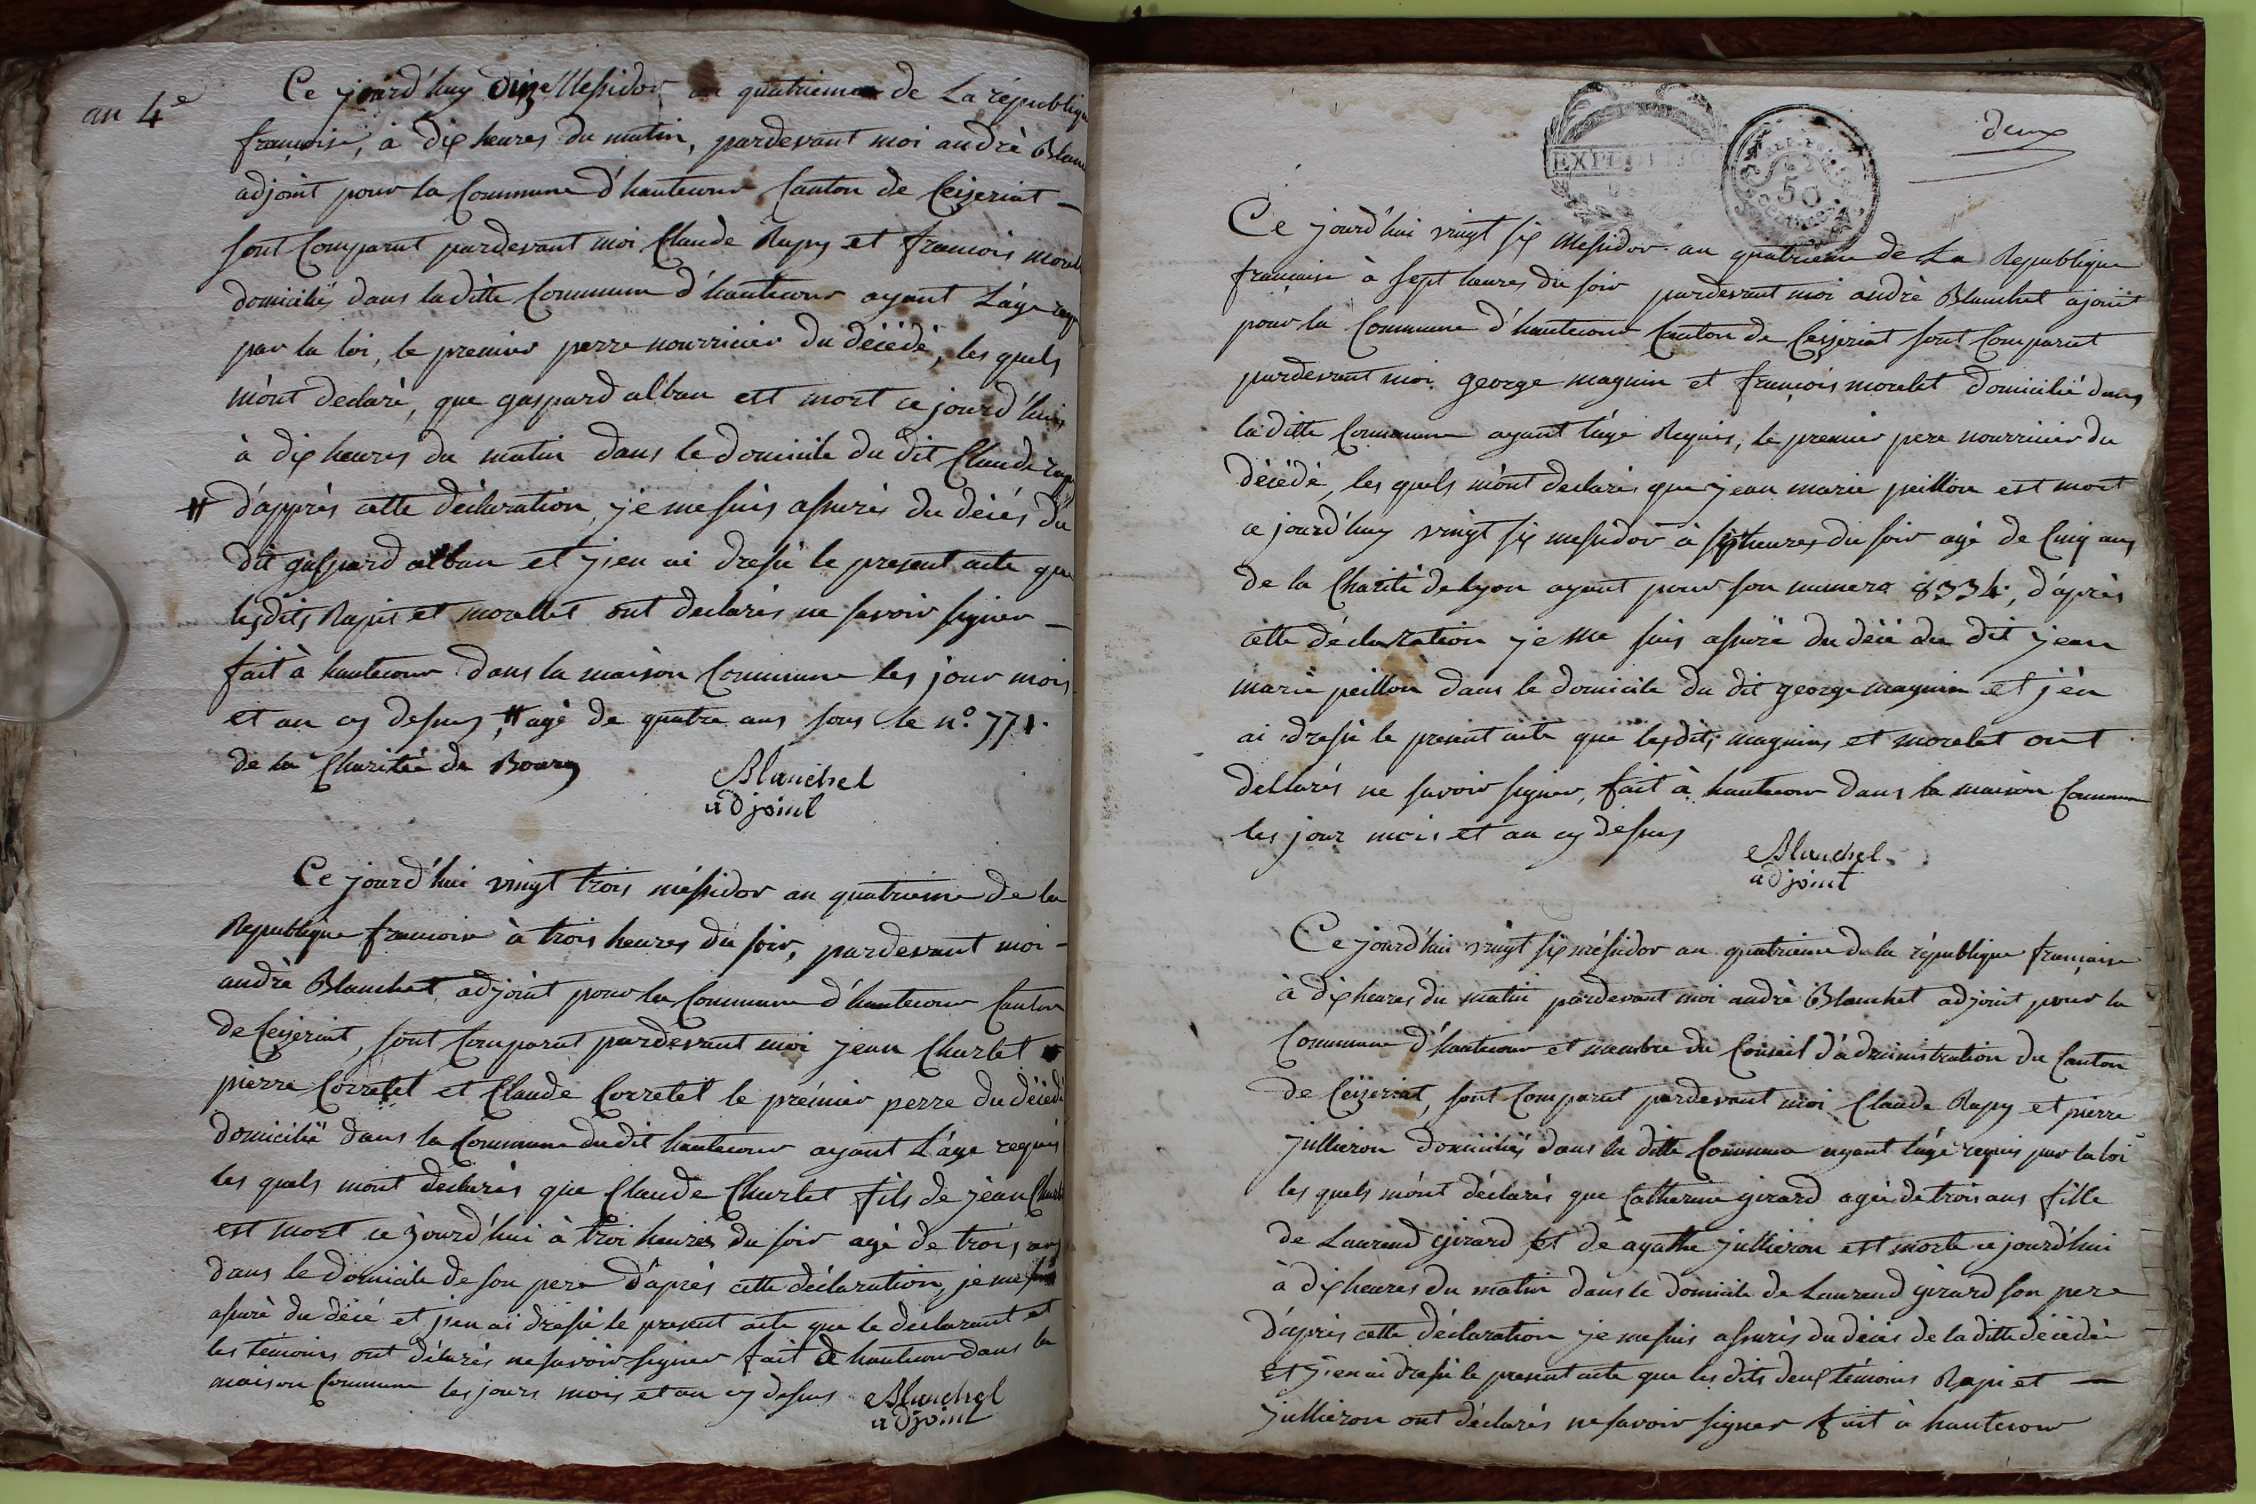 an 4e
Ce jourd'huy onze Messidor an quatrieme de La républiq
françoise, à dix heures du matin, pardevant moi andrè Blanc
adjoint pour la Commune d'hautecour Canton de Ceizeriat —
sont Comparut pardevant moi Claude Rapy et francois morel
domiciliés dans la ditte Commune d'hautecour ayant L'age req
par la loi, le premier perre nourricier du décédé, les quels
m'ont declaré, que gaspard alban est mort ce jourd'hui
à dix heures du matin dans le domicile du dit Claude rapy
# d'apprès cette déclaration, je me suis assurés du décés du
dit gaspard alban et j'ien ai dressé le present acte que
lesdits Rapis et morellet ont declarés ne savoir signer —
fait à hautecour dans la maison Commune les jour mois
et an cy dessus, # agé de quatre ans sous le n°. 771.
de la Charitée de Bourg
Blanchet
adjoint
Ce jourd'hui vingt trois méssidor an quatrieme de la
Republique francoise à trois heures du soir, pardevant moi —
andrè Blanchet adjoint pour la Commune d'hautecour Canton
de Ceizeriat, sont Comparut pardevant moi jean Charlet
pierre Correlet et Claude Correlet le prémier perre du décédé
domicilié dans la Commune du dit hautecour ayant L'age requis
les quels mont declarés que Claude Charlet fils de jean Charle
est mort ce jourd'hui à troi heures du soir agé de trois ans
dans le domicile de son pere d'après cette déclaration, je me suis
assuré du décé et j'ien ai dressé le present acte que le declarant et
les temoins ont délarés ne savoir signer fait à hautecour dans la
maison Commune les jours mois et an cy dessus
Blanchet
adjoint
EXPEDITION
50
deux
Ce jourd'hui vingt six Messidor an quatrieme de La Republique
française à sept heures du soir pardevant moi andrè Blanchet ajoint
pour la Commune d'hautecour Canton de Ceizeriat sont Comparut
pardevant moi george magnin et françois morelet domicilié dans
la ditte Commune ayant l'age Requis, le premier pere nourricier du
décédé, les quels m'ont declarés que jean marie peillon est mort
ce jourd'huy vingt six messidor à heures du soir agé de Cinq ans
de la Charité de lyon ayant pour son numero 8334, d'après
cette déclaration je me suis assuré du décé du dit jean
marie peillon dans le domicile du dit george magnin et j'en
ai dressé le present acte que lesdits magnins et morelet ont
dellarés ne savoir signer, fait à hautecour dans la maison Commune
les jour mois et an cy dessus
Blanchet
adjoint
Ce jourd'hui vingt six méssidor an quatrieme de la république française
à dix heures du matin pardevant moi andrè Blanchet adjoint pour la
Commune d'hautecour et membre du Conseil d'administration du Canton
de Ceizeriat, sont Comparut pardevant moi Claude Rapy et pierre
jullieron domiciliés dans la ditte Commune ayant l'age requis par la loi
les quels m'ont déclarés que Catherine girard agée de trois ans fille
de Laurend Girard et de agathe jullieron est morte ce jourd'hui
à dix heures du matin dans le domicile de Laurend girard son pere
d'après cette déclaration je me suis assurés du décés de la ditte décédée
et j'ien ai dressé le present acte que les dits deux témoins Rapi et —
jullieron ont déclarés ne savoir signer fait à hautecour